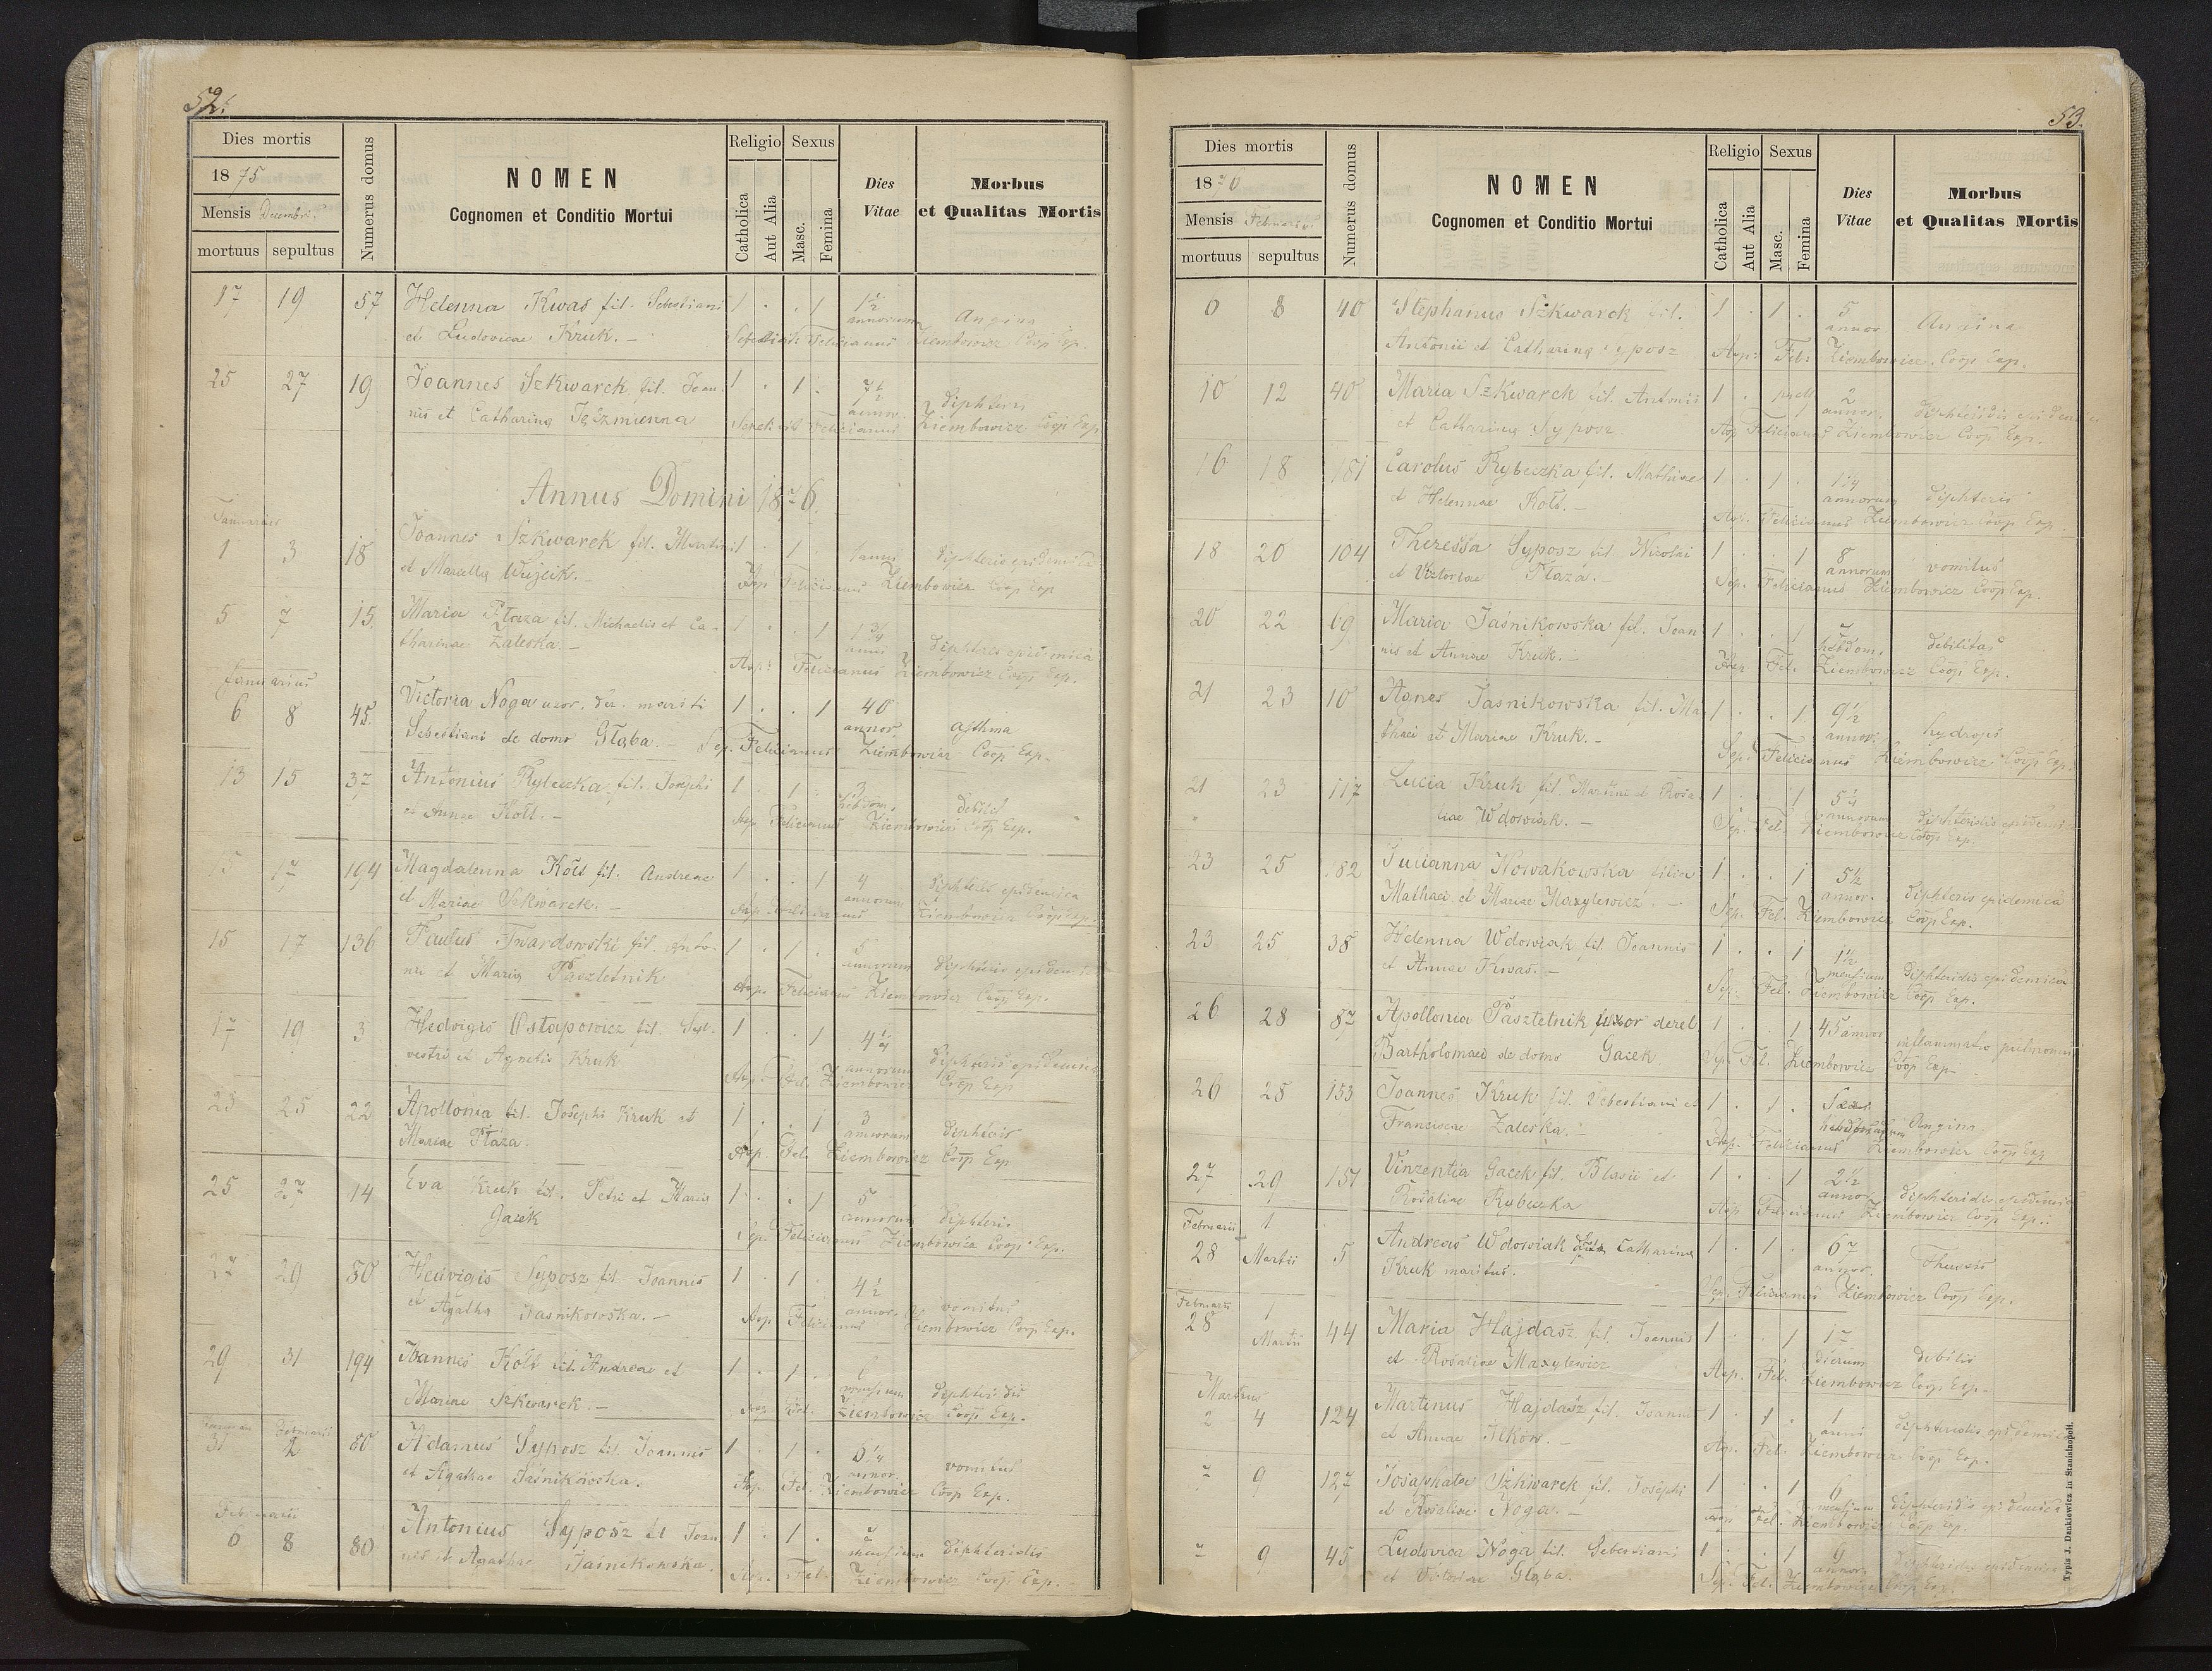 52.
Dies mortis
1875
Mensis Decembri.
mortuus sepultus
Numerus domus
NOMEN
Cognomen et Conditio Mortui
Religio
Catholica
Aut Alia
Sexus
Masc.
Femina
Dies
Vitae
Morbus
et Qualitas Mortis
17 19 57 Helenna Kwas fil. Sebestiani 1 . . 1 1½ annorum Angina
et Ludovicae Kruk. — Felicianus Ziembowicz Coop Exp.
25 27 19 Joannes Szkwarek fil. Joan- 1 . 1 . 7½ annor. diphteris
nis et Catharina Jęśzmienna Felicianus Ziembowicz Coop Exp.
Annus Domini 1876.
Januarius
1 3 18 Joannes Szkwarek fil. Martini 1 . 1 1 annus diphteris epidemica
et Marcella Wujcik. — Felicianus Ziembowicz Coop Exp
5 7 15. Maria Płaza fil. Michaelis et Ca- 1 . . 1 1¾ anni diphteris epidemica
tharinae Zaleska. — Felicianus Ziembowicz Coop Exp.
Januarius
6 8 45. Victoria Noga uxor. der. mariti 1 . . 1 40 annor. Asthma
Sebestiani de domo Głąba. — Sep. Felicianus Ziembowicz Coop Exp.
13 15 37 Antonius Rybeczka fil. Josephi 1 . 1 . 3 hebdom. debilit
et Annae Kołt. — Felicianus Ziembowicz Coop Exp.
15 17 194 Magdalenna Kołt fil. Andreae 1 . . 1 4 annorum diphteris epidemica
et Mariae Szkwarek. — Ziembowicz Coop Exp.
15 17 136 Paulus Twardowski fil. Anto- 1 . 1 . 5 annorum diphteris epidemica
nii et Maria Pasztetnik Felicianus Ziembowicz Coop Exp.
17 19 3 Hedvigis Ostapowicz fil. Syl- 1 . . 1 4¼ annorum diphteris epidemica
vestri et Agnetis Kruk Fel. Ziembowicz Coop Exp
23 25 22 Apollonia fil. Josephi Kruk et 1 . . 1 3 annorum diphteris
Mariae Płaza. Fel. Ziembowicz Coop Exp
25 27 14 Eva Kruk fil. Petri et Maria 1 . . 1 5 annorum diphteris
Gacek Sep. Felicianus Ziembowicz Coop Exp.
27 29 80 Hedvigis Syposz fil. Joannis 1 . 1 . 4½ annor. vomitus
et Agatha Jaśnikowska. — Felicianus Ziembowicz Coop Exp.
29 31 194 Joannes Kołt fil. Andreae et 1 . 1 . 6 mensium diphteridis
Mariae Szkwarek. — Fel. Ziembowicz Coop Exp.
Januari Februarii
31 2 80 Adamus Syposz fil. Joannis 1 . 1 . 6¼ annor. vomitus
et Agathae Jaśnikowska. Fel. Ziembowicz Coop Exp.
Februarii
6 8 80 Antonius Syposz fil Joan 1 . 1 . mensium diphteridis
nis et Agathae Jaśnikowska. Fel. Ziembowicz Coop Exp.
53.
Dies mortis
1876
Mensis Februarius
mortuus sepultus
Numerus domus
NOMEN
Cognomen et Conditio Mortui
Religio
Catholica
Aut Alia
Sexus
Masc.
Femina
Dies
Vitae
Morbus
et Qualitas Mortis
6 8 40 Stephanus Szkwarek fil. 1 . 1 . 5 annor Angina
Antonii et Catharina Syposz Fel. Ziembowicz. Coop Exp.
10 12 40 Maria Szkwarek fil. Antonii 1 . 1 2 annor. diphteridis epidemica
et Catharina Syposz. Felicianus Ziembowicz Coop Exp.
16 18 181 Carolus Rybeczka fil. Mathiae 1 . 1 . 1¼ annorum diphteris
et Helennae Kołt. — Felicianus Ziembowicz Coop Exp.
18 20 104 Theressa Syposz fil. Nicolai 1 . . 1 8 annorum vomitus
et Victoriae Płaza. — Sep. Felicianus Ziembowicz Coop Exp.
20 22 69 Maria Jaśnikowska fil. Joan 1 . . 1 hebdom. debilitas
nis et Annae Kruk. — Fel. Ziembowicz Coop Exp.
21 23 10 Agnes Jaśnikowska fil. Ma- 1 . . 1 9½ annor. hydrops
thaei et Mariae Kruk. — Sep. Felicianus Ziembowicz Coop Exp.
21 23 117 Lucia Kruk fil. Martini et Rosa- 1 . 1 5¼ annorum diphteridis epidemica
liae Wdowiak. — Sep. Fel. Ziembowicz Coop Exp.
23 25 182 Julianna Nowakowska filia 1 . . 1 5½ annor. diphteris epidemica
Mathaei et Mariae Maxylewicz. — Sep. Fel. Ziembowicz Coop Exp.
23 25 38 Helenna Wdowiak fil. Joannis 1 . . 1 1½ mensium diphteridis epidemica
et Annae Kwas. — Sep. Fel. Ziembowicz Coop Exp.
26 28 87 Apollonia Pasztetnik uxor derel 1 . . 1 45 annor inflammatio pulmonum
Bartholomaei de domo Gacek Sep. Fel. Ziembowicz Coop Exp —
26 28 153 Joannes Kruk fil. Sebestiani et 1 . 1 . Sex hebdomadum Angina
Franciscae Zaleska. — Felicianus Ziembowicz Coop Exp
27 29 151 Vinzentia Gacek fil. Blasii et 1 . . 1 2½ annor diphteridis epidemica
Rosaliae Rybeczka Felicianus Ziembowicz Coop Exp.
Februarii 1
28 Martii 5 Andreas Wdowiak Catharina 1 . 1 . 67 annor.
Kruk maritus. Sep. Felicianus Ziembowicz Coop Exp.
Februarii 1
28 Martii 44 Maria Hajdasz fil. Joannis 1 . 1 17 dierum debilis
et Rosaliae Maxylewicz Fel. Ziembowicz Coop Exp —
Martius
2 4 124 Martinus Hajdasz fil. Joannis 1 . 1 . 1 anni diphteridis epidemica
et Annae Ilkow. — Fel. Ziembowicz Coop Exp.
7 9 127 Josaphata Szkwarek fil. Josephi 1 . . 1 6 mensium diphteridis epidemica
et Rosaliae Noga. — Fel. Ziembowicz Coop Exp.
7 9 45 Ludovica Noga fil. Sebestiani 1 . . 1 9 annor diphteridis epidemica
et Victoriae Głąba. Sep. Fel. Ziembowicz Coop Exp.
Typis J. Dankiewicz in Stanislaopoli.